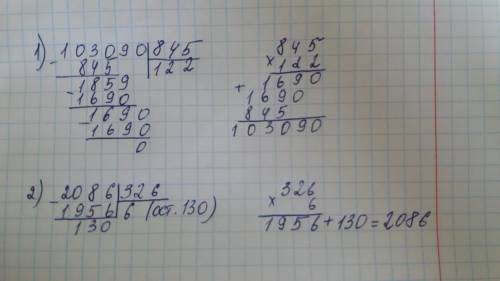 1) - 103090 | 845      845
845 | 122      × 122
- 1859      1690
1690      + 1690
- 1690      845
1690      103090
0
2) - 2086 | 326      × 326
1956 | 6 (ост. 130)      6
130      1956 + 130 = 2086